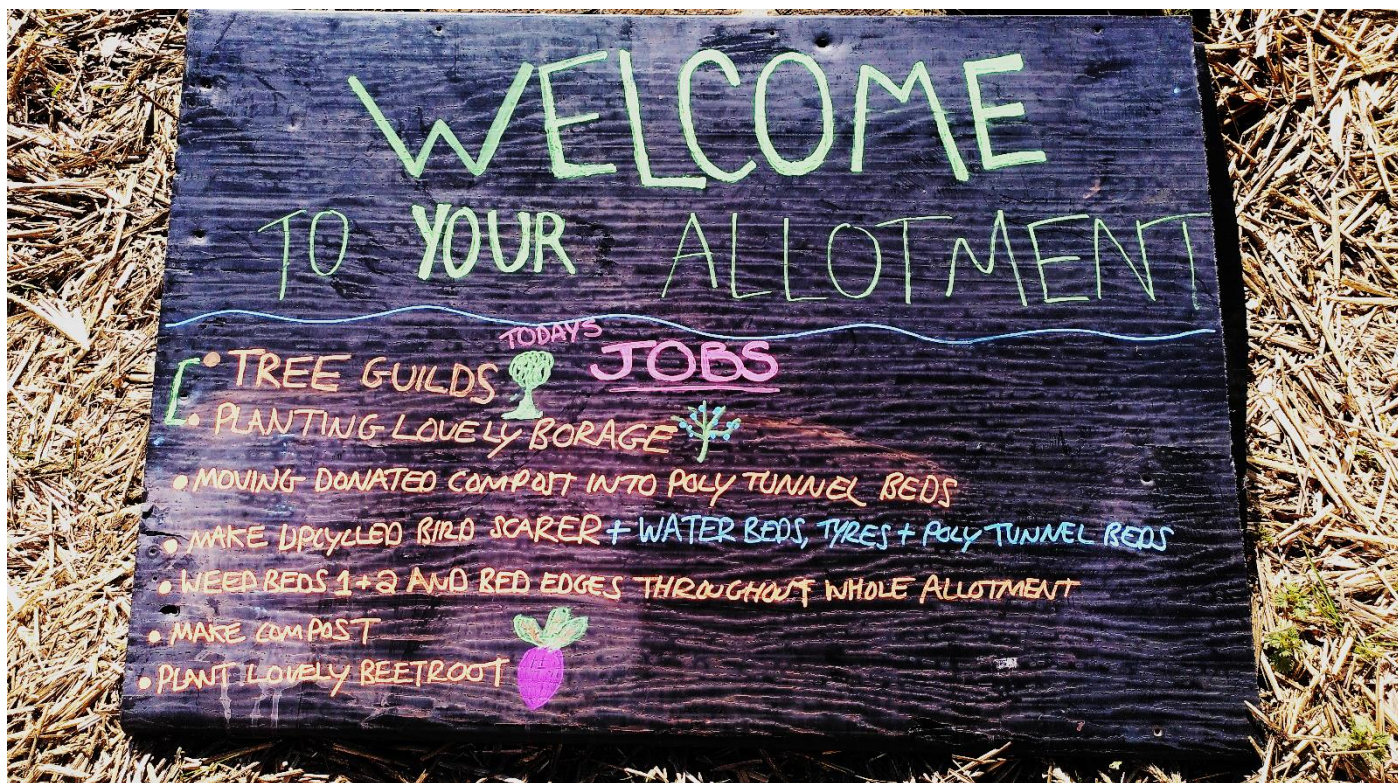 WELCOME
TO YOUR ALLOTMENT
TODAYS
JOBS
• TREE GUILDS
• PLANTING LOVELY BORAGE
• MOVING DONATED COMPOST INTO POLY TUNNEL BEDS
• MAKE UPCYCLED BIRD SCARER + WATER BEDS, TYRES + POLY TUNNEL BEDS
• WEED BEDS 1+2 AND BED EDGES THROUGHOUT WHOLE ALLOTMENT
• MAKE COMPOST
• PLANT LOVELY BEETROOT